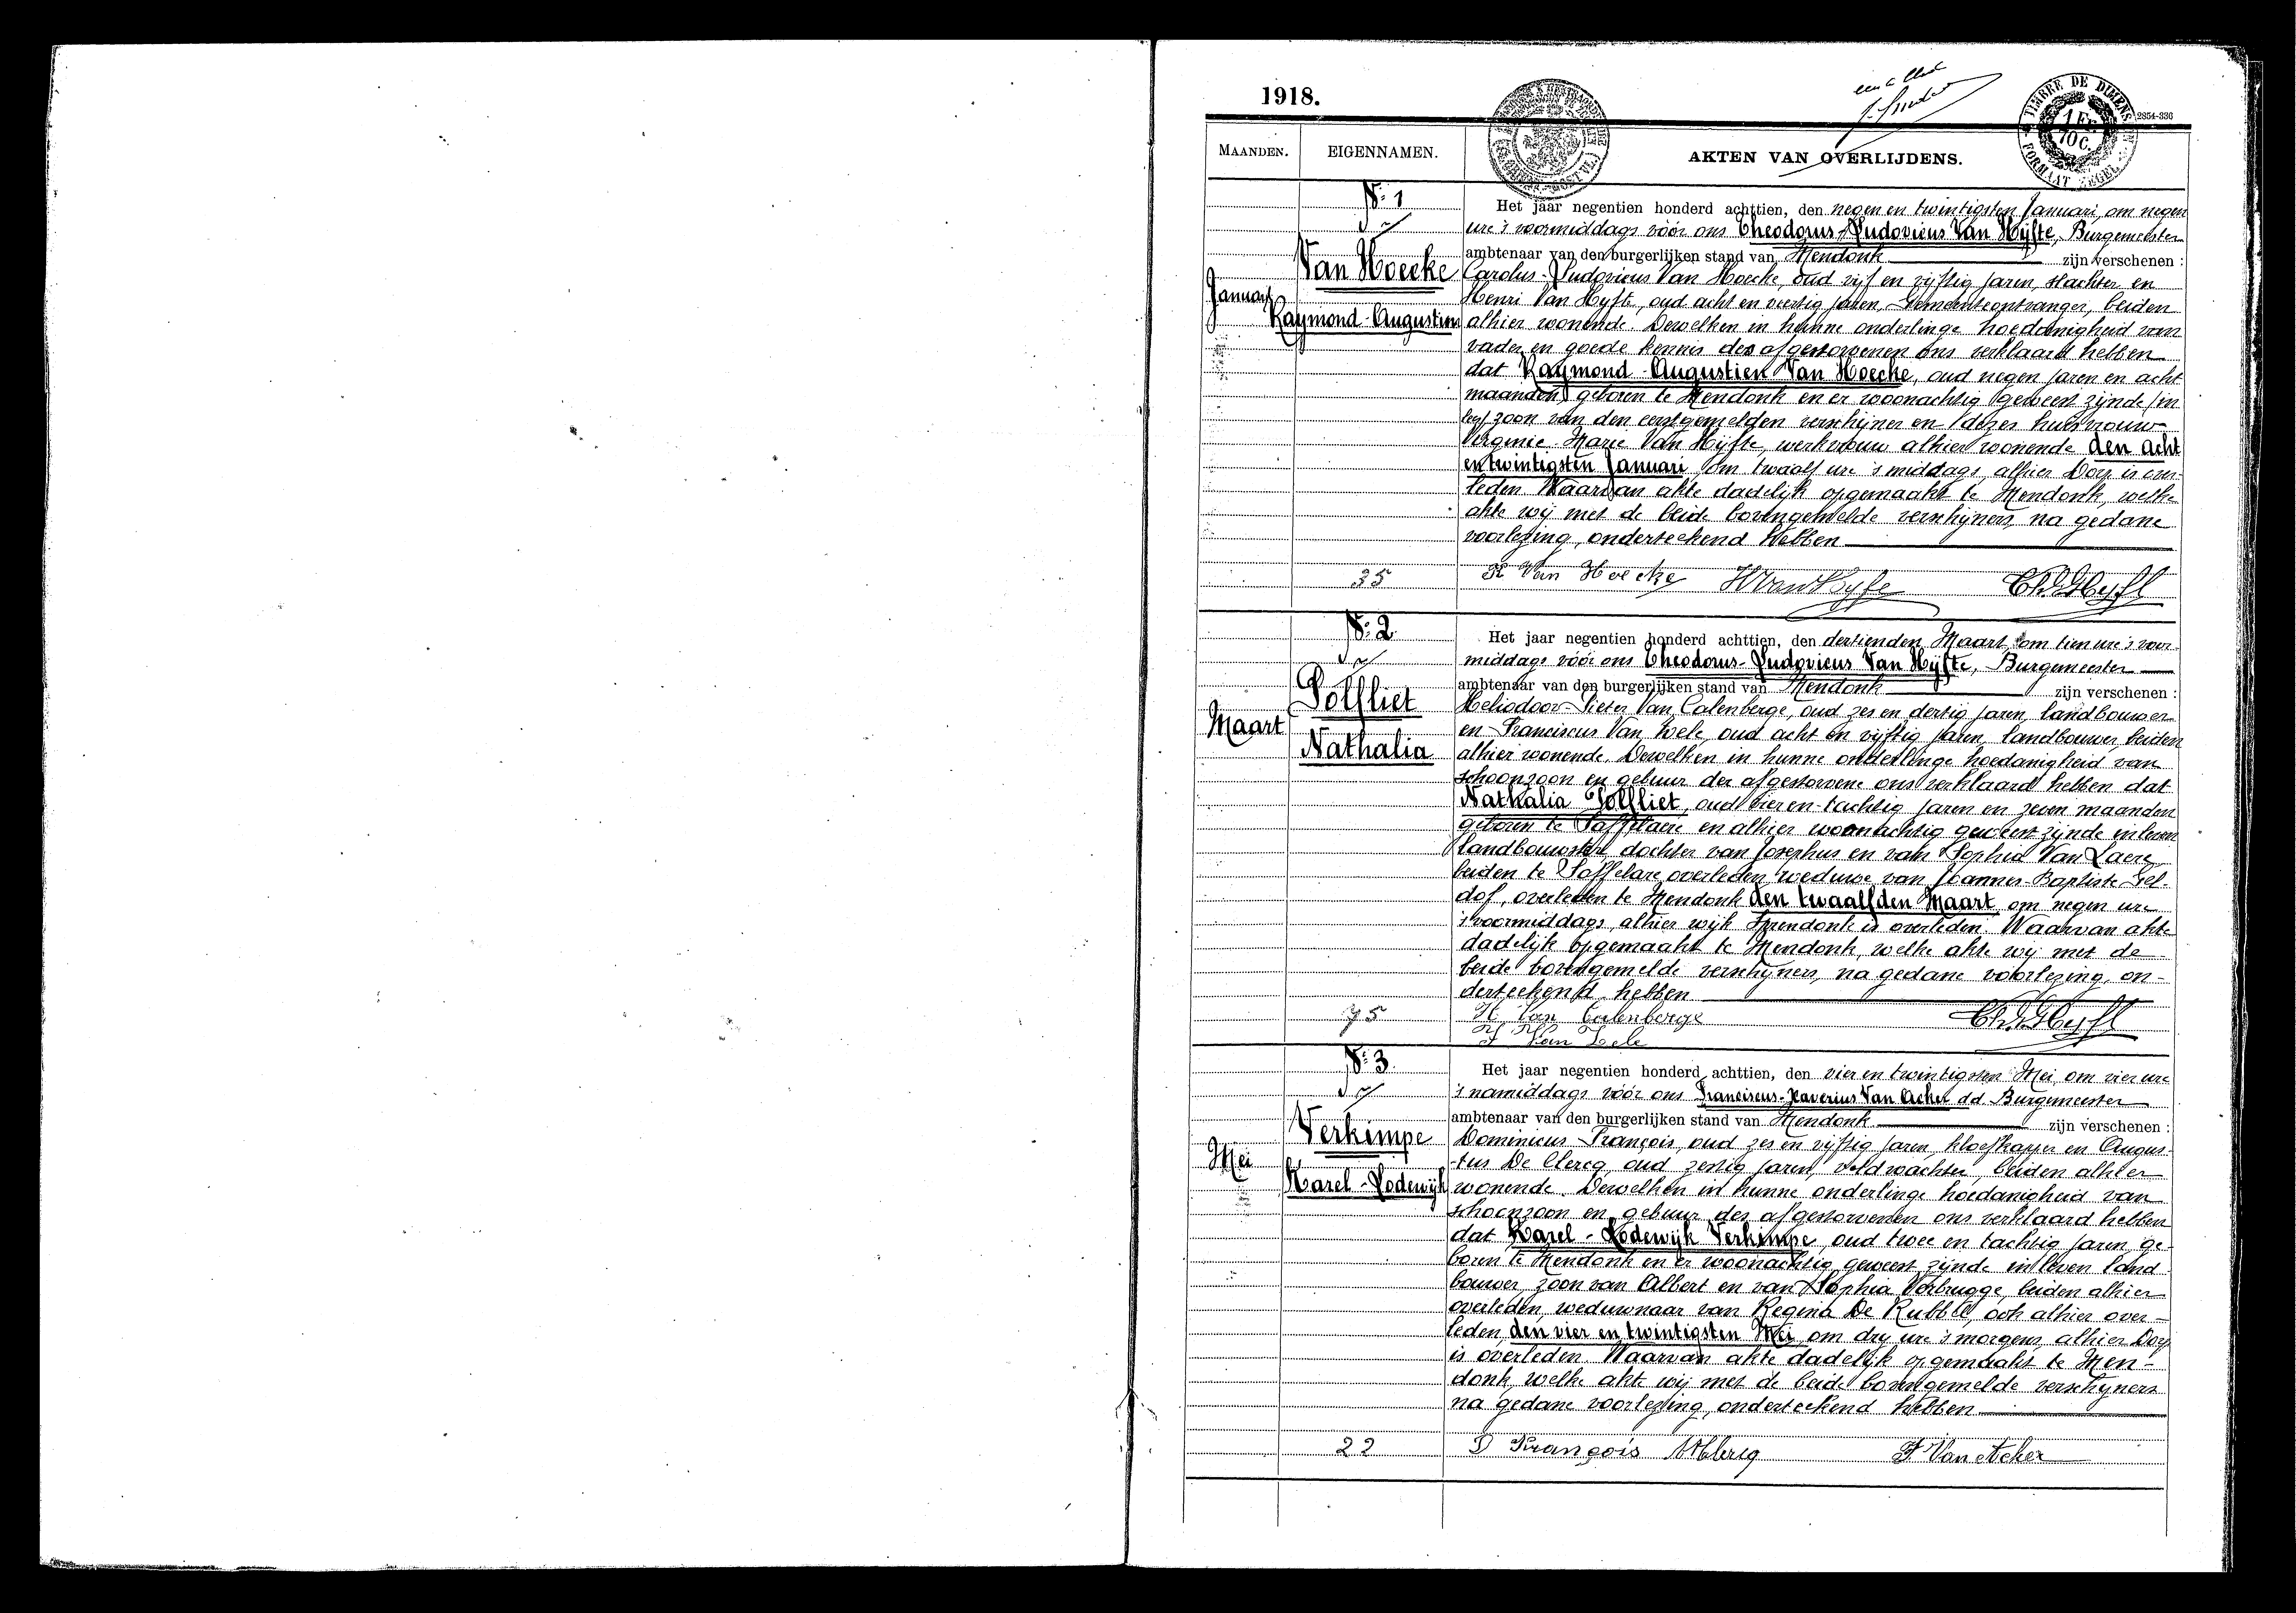 1918.
TIMBRE DE DIMENS
1 Fr.
70 C.
FORMAAT ZEGEL
2854-336
MAANDEN.
EIGENNAMEN.
AKTEN VAN OVERLIJDENS.
Nr. 1
Van Hoecke
Januari
Raymond-Augustien
Het jaar negentien honderd achttien, den negen en twintigsten Januari, om negen
ure 's voormiddags vóór ons Theodorus-Ludovicus Van Hyfte, Burgemeester
ambtenaar van den burgerlijken stand van Mendonk zijn verschenen :
Carolus-Ludovicus Van Hoecke, oud vijf en vijftig jaren, slachter en
Henri Van Hyfte, oud acht en veertig jaren, Gemeenteontvanger, beiden
alhier wonende. Dewelken in hunne onderlinge hoedanigheid van
vader en goede kennis des afgestorvenen ons verklaard hebben
dat Raymond-Augustien Van Hoecke, oud negen jaren en acht
maanden, geboren te Mendonk en er woonachtig geweest zijnde in
leve zoon van den eerstgemelden verschijner en dezes huisvrouw
Virginie-Marie Van Hyfte, werkvrouw alhier wonende den acht
en twintigsten Januari, om twaalf ure 's middags, alhier Dorp is over-
leden Waarvan akte dadelijk opgemaakt te Mendonk, welke
akte wij met de beide bovengemelde verschijners, na gedane
voorlezing, onderteekend hebben
35
K Van Hoecke H Van Hyfte Th. V. Hyfte
Nr. 2
Polfliet
Maart
Nathalia
Het jaar negentien honderd achttien, den dertienden Maart, om tien ure 's voor-
middags vóór ons Theodorus-Ludovicus Van Hyfte, Burgemeester
ambtenaar van den burgerlijken stand van Mendonk zijn verschenen :
Heliodoor-Pieter Van Calenberge, oud zes en dertig jaren, landbouwer
en Franciscus Van Hele, oud acht en vijftig jaren, landbouwer, beiden
alhier wonende. Dewelken in hunne onderlinge hoedanigheid van
schoonzoon en gebuur der afgestorvene ons verklaard hebben dat
Nathalia Polfliet, oud vier en tachtig jaren en zeven maanden
geboren te Saffelaere en alhier woonachtig geweest zijnde in leven
landbouwster, dochter van Josephus en van Sophia Van Laere
beiden te Saffelare overleden, weduwe van Joannes-Baptiste Gel-
dof, overleden te Mendonk den twaalfden Maart, om negen ure
's voormiddags, alhier wijk Spendonk is overleden. Waarvan akte
dadelijk opgemaakt te Mendonk, welke akte wij met de
beide bovengemelde verschijners, na gedane voorlezing, on-
derteekend hebben
75
H. Van Calenberge Th. V. Hyfte
F Van Hele
Nr. 3
Verkimpe
Mei
Karel-Lodewijk
Het jaar negentien honderd achttien, den vier en twintigsten Mei, om vier ure
's namiddags vóór ons Franciscus-Xaverius Van Acker dd. Burgemeester
ambtenaar van den burgerlijken stand van Mendonk zijn verschenen :
Dominicus François, oud zes en vijftig jaren, kloefkapper en Augus-
tus De Clercq, oud zestig jaren, veldwachter, beiden alhier
wonende. Dewelken in hunne onderlinge hoedanigheid van
schoonzoon en gebuur des afgestorvenen ons verklaard hebben
dat Karel-Lodewijk Verkimpe, oud twee en tachtig jaren, ge-
boren te Mendonk en er woonachtig geweest zijnde in leven land-
bouwer, zoon van Albert en van Sophia Verbrugge, beiden alhier
overleden, weduwnaar van Regina De Rubble, ook alhier over-
leden, den vier en twintigsten Mei, om dry ure 's morgens, alhier Dorp
is overleden. Waarvan akte dadelijk opgemaakt te Men-
donk, welke akte wij met de beide bovengemelde verschijners
na gedane voorlezing, onderteekend hebben
22
D François A Declercq F Van Acker